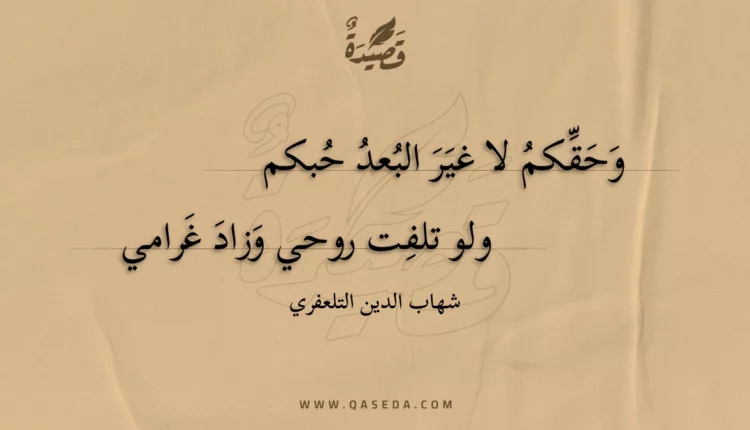 قَصِيْدَةٌ
وَحَقِّكمُ لا غيَرَ البُعدُ حُبكم
ولو تلفِت روحي وَزادَ غَرامي
شهاب الدين التلعفري
WWW.QASEDA.COM